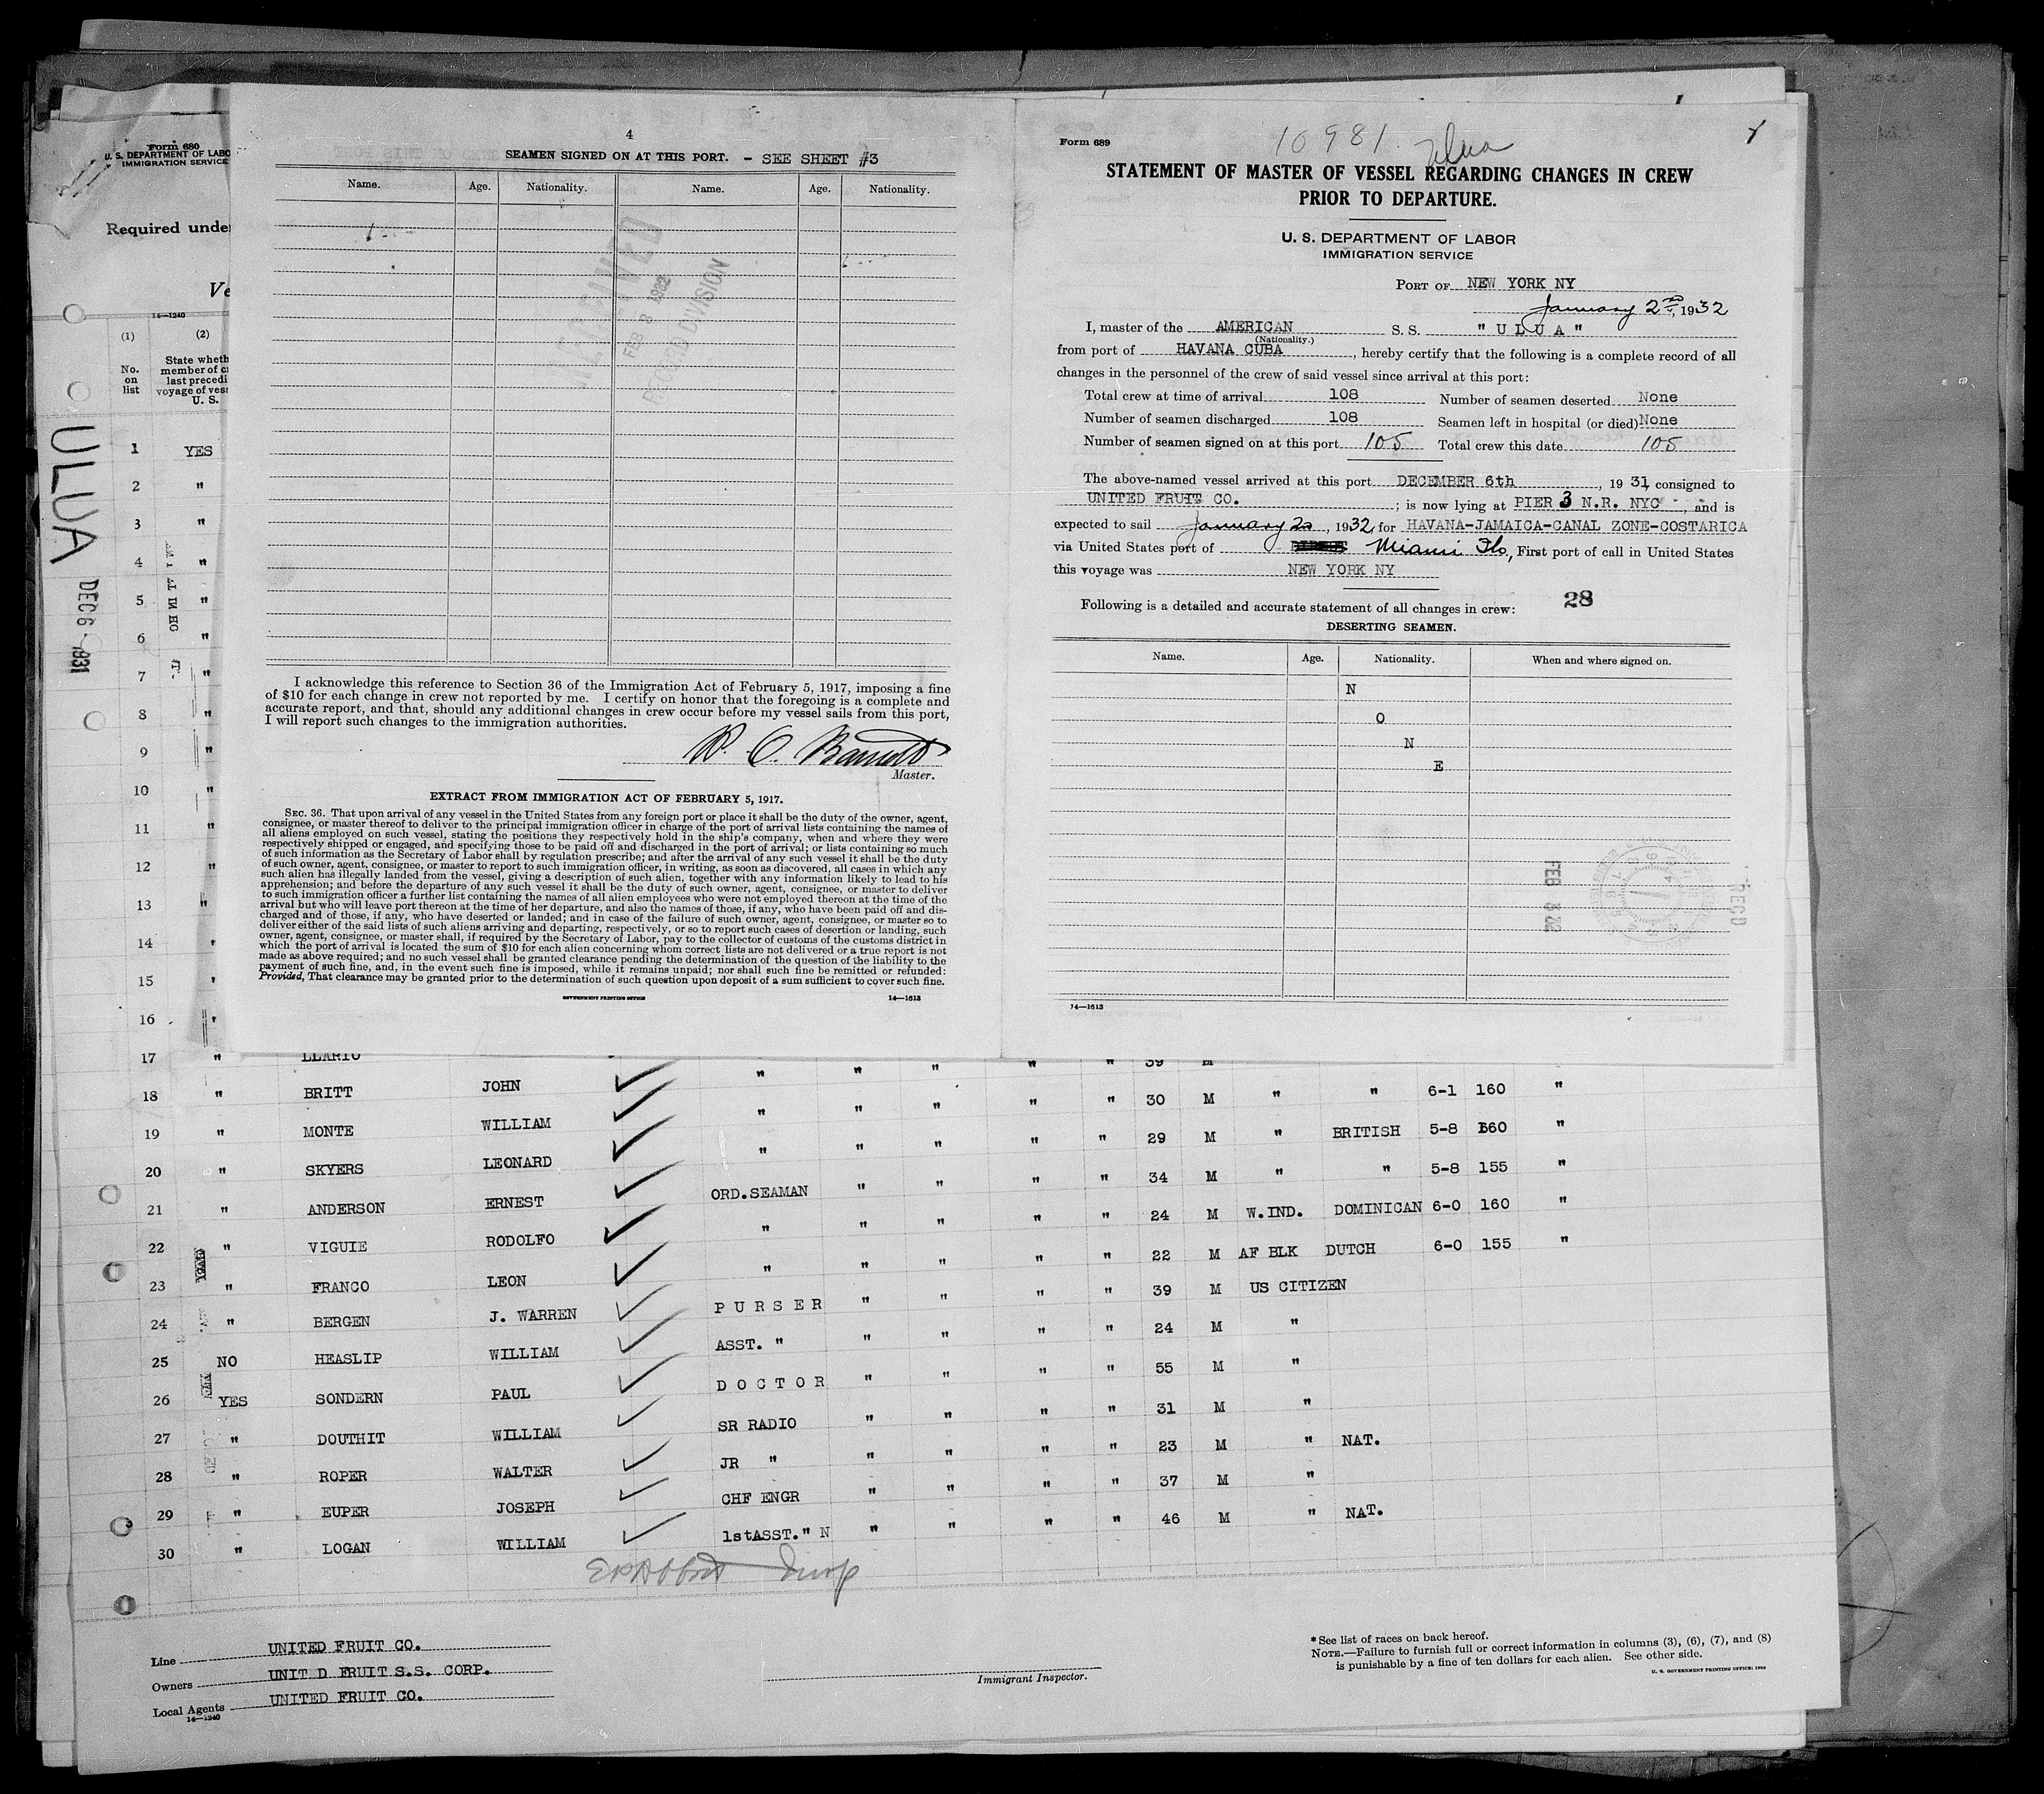 Form 680
U. S. DEPARTMENT OF LABO
IMMIGRATION SERVICE
Required unde
Ve
14—1240
(1) (2)
No. on list
State wheth
member of c
last precedi
voyage of vess
U. S.
ULUA
DEC 6 1931
1 YES
2 "
3 "
4 "
5 "
6 "
7 "
8 "
9 "
10 "
11 "
12 "
13 "
14 "
15 "
16 "
4
SEAMEN SIGNED ON AT THIS PORT. - SEE SHEET #3
Name. Age. Nationality. Name. Age. Nationality.
RECEIVED
FEB 3 1932
RECORD DIVISION
I acknowledge this reference to Section 36 of the Immigration Act of February 5, 1917, imposing a fine
of $10 for each change in crew not reported by me. I certify on honor that the foregoing is a complete and
accurate report, and that, should any additional changes in crew occur before my vessel sails from this port,
I will report such changes to the immigration authorities.
Master.
EXTRACT FROM IMMIGRATION ACT OF FEBRUARY 5, 1917.
SEC. 36. That upon arrival of any vessel in the United States from any foreign port or place it shall be the duty of the owner, agent,
consignee, or master thereof to deliver to the principal immigration officer in charge of the port of arrival lists containing the names of
all aliens employed on such vessel, stating the positions they respectively hold in the ship's company, when and where they were
respectively shipped or engaged, and specifying those to be paid off and discharged in the port of arrival; or lists containing so much
of such information as the Secretary of Labor shall by regulation prescribe; and after the arrival of any such vessel it shall be the duty
of such owner, agent, consignee, or master to report to such immigration officer, in writing, as soon as discovered, all cases in which any
such alien has illegally landed from the vessel, giving a description of such alien, together with any information likely to lead to his
apprehension; and before the departure of any such vessel it shall be the duty of such owner, agent, consignee, or master to deliver
to such immigration officer a further list containing the names of all alien employees who were not employed thereon at the time of the
arrival but who will leave port thereon at the time of her departure, and also the names of those, if any, who have been paid off and dis-
charged and of those, if any, who have deserted or landed; and in case of the failure of such owner, agent, consignee, or master so to
deliver either of the said lists of such aliens arriving and departing, respectively, or so to report such cases of desertion or landing, such
owner, agent, consignee, or master shall, if required by the Secretary of Labor, pay to the collector of customs of the customs district in
which the port of arrival is located the sum of $10 for each alien concerning whom correct lists are not delivered or a true report is not
made as above required; and no such vessel shall be granted clearance pending the determination of the question of the liability to the
payment of such fine, and, in the event such fine is imposed, while it remains unpaid; nor shall such fine be remitted or refunded:
Provided, That clearance may be granted prior to the determination of such question upon deposit of a sum sufficient to cover such fine.
GOVERNMENT PRINTING OFFICE 14—1613
Form 689
10981. Ulua
STATEMENT OF MASTER OF VESSEL REGARDING CHANGES IN CREW
PRIOR TO DEPARTURE.
U. S. DEPARTMENT OF LABOR
IMMIGRATION SERVICE
PORT OF NEW YORK NY
January 2nd, 1932
I, master of the AMERICAN S. S. " U L U A "
(Nationality.)
from port of HAVANA CUBA, hereby certify that the following is a complete record of all
changes in the personnel of the crew of said vessel since arrival at this port:
Total crew at time of arrival 108 Number of seamen deserted None
Number of seamen discharged 108 Seamen left in hospital (or died) None
Number of seamen signed on at this port 105 Total crew this date 105
The above-named vessel arrived at this port DECEMBER 6th, 1931, consigned to
UNITED FRUIT CO.; is now lying at PIER 3 N.R. NYC, and is
expected to sail January 2nd, 1932, for HAVANA-JAMAICA-CANAL ZONE-COSTARICA
via United States port of Miami Fla, First port of call in United States
this voyage was NEW YORK NY
Following is a detailed and accurate statement of all changes in crew: 28
DESERTING SEAMEN.
Name. Age. Nationality. When and where signed on.
N
O
N
E
FEB 3 32
RECD
14—1613
17 " LLARIO " " " " " 39 M
18 " BRITT JOHN " " " " " 30 M " " 6-1 160 "
19 " MONTE WILLIAM " " " " " 29 M " BRITISH 5-8 160 "
20 " SKYERS LEONARD " " " " " 34 M " " 5-8 155 "
21 " ANDERSON ERNEST ORD.SEAMAN " " " " 24 M W.IND. DOMINICAN 6-0 160 "
22 " VIGUIE RODOLFO " " " " " 22 M AF BLK DUTCH 6-0 155 "
23 " FRANCO LEON " " " " " 39 M US CITIZEN
24 " BERGEN J. WARREN P U R S E R " " " " 24 M "
25 NO HEASLIP WILLIAM ASST. " " " " " 55 M "
26 YES SONDERN PAUL D O C T O R " " " " 31 M "
27 " DOUTHIT WILLIAM SR RADIO " " " " 23 M " NAT.
28 " ROPER WALTER JR " " " " " 37 M "
29 " EUPER JOSEPH CHF ENGR " " " " 46 M " NAT.
30 " LOGAN WILLIAM 1stASST." N " "
Line UNITED FRUIT CO.
Owners UNIT D FRUIT S.S. CORP.
Local Agents UNITED FRUIT CO.
14—1240
Immigrant Inspector.
* See list of races on back hereof.
NOTE.—Failure to furnish full or correct information in columns (3), (6), (7), and (8)
is punishable by a fine of ten dollars for each alien. See other side.
U. S. GOVERNMENT PRINTING OFFICE: 1929